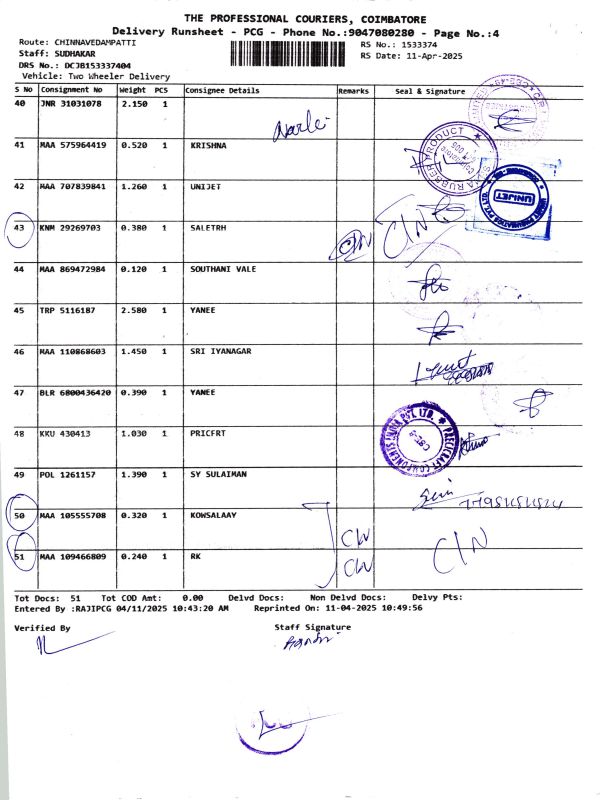 THE PROFESSIONAL COURIERS, COIMBATORE
Delivery Runsheet - PCG - Phone No.:9047080280 - Page No.:4
Route: CHINNAVEDAMPATTI
RS No.: 1533374
Staff: SUDHAKAR
RS Date: 11-Apr-2025
DRS No.: DCJB153337404
Vehicle: Two Wheeler Delivery
S No Consignment No Weight PCS Consignee Details Remarks Seal & Signature
40 JNR 31031078 2.150 1
41 MAA 575964419 0.520 1 KRISHNA
42 MAA 707839841 1.260 1 UNIJET
UNIJET
43 KNM 29269703 0.380 1 SALETRH CIN CIN
44 MAA 869472984 0.120 1 SOUTHANI VALE
45 TRP 5116187 2.580 1 YANEE
46 MAA 110868603 1.450 1 SRI IYANAGAR
47 BLR 6800436420 0.390 1 YANEE
48 KKU 430413 1.030 1 PRICFRT
49 POL 1261157 1.390 1 SY SULAIMAN
50 MAA 105555708 0.320 1 KOWSALAAY CIN
51 MAA 109466809 0.240 1 RK CIN CIN
Tot Docs: 51 Tot COD Amt: 0.00 Delvd Docs: Non Delvd Docs: Delvy Pts:
Entered By :RAJIPCG 04/11/2025 10:43:20 AM Reprinted On: 11-04-2025 10:49:56
Verified By Staff Signature